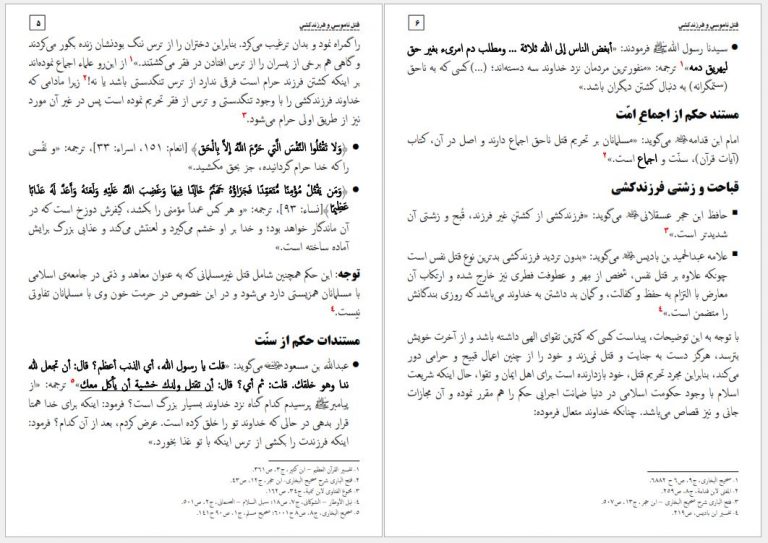 قتل ناموسی و فرزندکشی
۵
را گمراه نمود و بدان ترغیب می‌کرد. بنابراین دختران را از ترس ننگ بودنشان زنده بگور می‌کردند
و گاهی هم برخی از پسران را از ترس افتادن در فقر می‌کشتند.»۱ از این‌رو علماء اجماع نموده‌اند
بر اینکه کشتن فرزند حرام است فرقی ندارد از ترس تنگدستی باشد یا نه!۲ زیرا مادامی که
خداوند فرزندکشی را با وجود تنگدستی و ترس از فقر تحریم نموده است پس در غیر آن مورد
نیز از طریق اولی حرام می‌شود.۳
● ﴿وَلَا تَقْتُلُوا النَّفْسَ الَّتِي حَرَّمَ اللَّهُ إِلَّا بِالْحَقِّ﴾ [انعام: ۱۵۱، اسراء: ۳۳]، ترجمه: «و نَفْسی
را که خدا حرام گردانیده، جز بحق مکشید.»
● ﴿وَمَن يَقْتُلْ مُؤْمِنًا مُّتَعَمِّدًا فَجَزَاؤُهُ جَهَنَّمُ خَالِدًا فِيهَا وَغَضِبَ اللَّهُ عَلَيْهِ وَلَعَنَهُ وَأَعَدَّ لَهُ عَذَابًا
عَظِيمًا﴾ [نساء: ۹۳]، ترجمه: «و هر کس عمداً مؤمنی را بکشد، کیفرش دوزخ است که در
آن ماندگار خواهد بود؛ و خدا بر او خشم می‌گیرد و لعنتش می‌کند و عذابی بزرگ برایش
آماده ساخته است.»
توجه: این حکم همچنین شامل قتل غیرمسلمانی که به عنوان معاهد و ذمّی در جامعه‌ی اسلامی
با مسلمانان همزیستی دارد می‌شود و در این خصوص در حرمت خون وی با مسلمانان تفاوتی
نیست.۴
مستندات حکم از سنّت
● عبدالله بن مسعود می‌گوید: «قلت یا رسول الله، أي الذنب أعظم؟ قال: أن تجعل لله
ندا وهو خلقك. قلت: ثم أي؟ قال: أن تقتل ولدك خشية أن يأكل معك»۵ ترجمه: «از
پیامبرﷺ پرسیدم کدام گناه نزد خداوند بسیار بزرگ است؟ فرمود: اینکه برای خدا همتا
قرار بدهی در حالی که خداوند تو را خلق کرده است. عرض کردم، بعد از آن کدام؟ فرمود:
اینکه فرزندت را بکشی از ترس اینکه با تو غذا بخورد.»
۱. تفسیر القرآن العظیم – ابن کثیر، ج۳، ص۳۶۱.
۲. فتح الباری شرح صحیح البخاری- ابن حجر، ج۱۲، ص۴۳.
۳. مجموع الفتاوی لابن تیمیة، ج۳۴، ص۱۶۲.
۴. نیل الأوطار – الشوکانی، ج۷، ص۱۸؛ سبل السلام – الصنعانی، ج۲، ص۵۰۱.
۵. صحیح البخاری، ج۸، ص۸ ح۶۰۰۱؛ صحیح مسلم، ج۱، ص۹۰ ح۱۴۱.
قتل ناموسی و فرزندکشی
۶
● سیدنا رسول اللهﷺ فرمودند: «أبغض الناس إلى الله ثلاثة ... ومطلب دم امرىء بغير حق
ليهريق دمه»۱ ترجمه: «منفورترین مردمان نزد خداوند سه دسته‌اند؛ (...) کسی که به ناحق
(ستمگرانه) به دنبال کشتن دیگران باشد.»
مستند حکم از اجماع امّت
امام ابن قدامه می‌گوید: «مسلمانان بر تحریم قتل ناحق اجماع دارند و اصل در آن، کتاب
(آیات قرآن)، سنّت و اجماع است.»۲
قباحت و زشتی فرزندکشی
■ حافظ ابن حجر عسقلانی می‌گوید: «فرزندکشی از کشتن غیر فرزند، قُبح و زشتی آن
شدیدتر است.»۳
■ علامه عبدالحمید بن بادیس می‌گوید: «بدون تردید فرزندکشی بدترین نوع قتل نفس است
چونکه علاوه بر قتل نفس، شخص از مِهر و عطوفت فطری نیز خارج شده و ارتکاب آن
معارض با التزام به حفظ و کفالت، و گمان بد داشتن به خداوند می‌باشد که روزی بندگانش
را متضمن است.»۴
با توجه به این توضیحات، پیداست کسی که کمترین تقوای الهی داشته باشد و از آخرت خویش
بترسد، هرگز دست به جنایت و قتل نمی‌زند و خود را از چنین اعمال قبیح و حرامی دور
می‌کند، بنابراین مجرد تحریم قتل، خود بازدارنده است برای اهل ایمان و تقوا، حال اینکه شریعت
اسلام با وجود حکومت اسلامی در دنیا ضمانت اجرایی حکم را هم مقرر نموده و آن مجازات
جانی و نیز قصاص می‌باشد. چنانکه خداوند متعال فرموده:
۱. صحیح البخاری، ج۹، ص۶ ح ۶۸۸۲.
۲. المغنی لابن قدامة، ج۸، ص۲۵۹.
۳. فتح الباری شرح صحیح البخاری – ابن حجر، ج۱۳، ص۵۰۷.
۴. تفسیر ابن بادیس، ص۲۱۹.